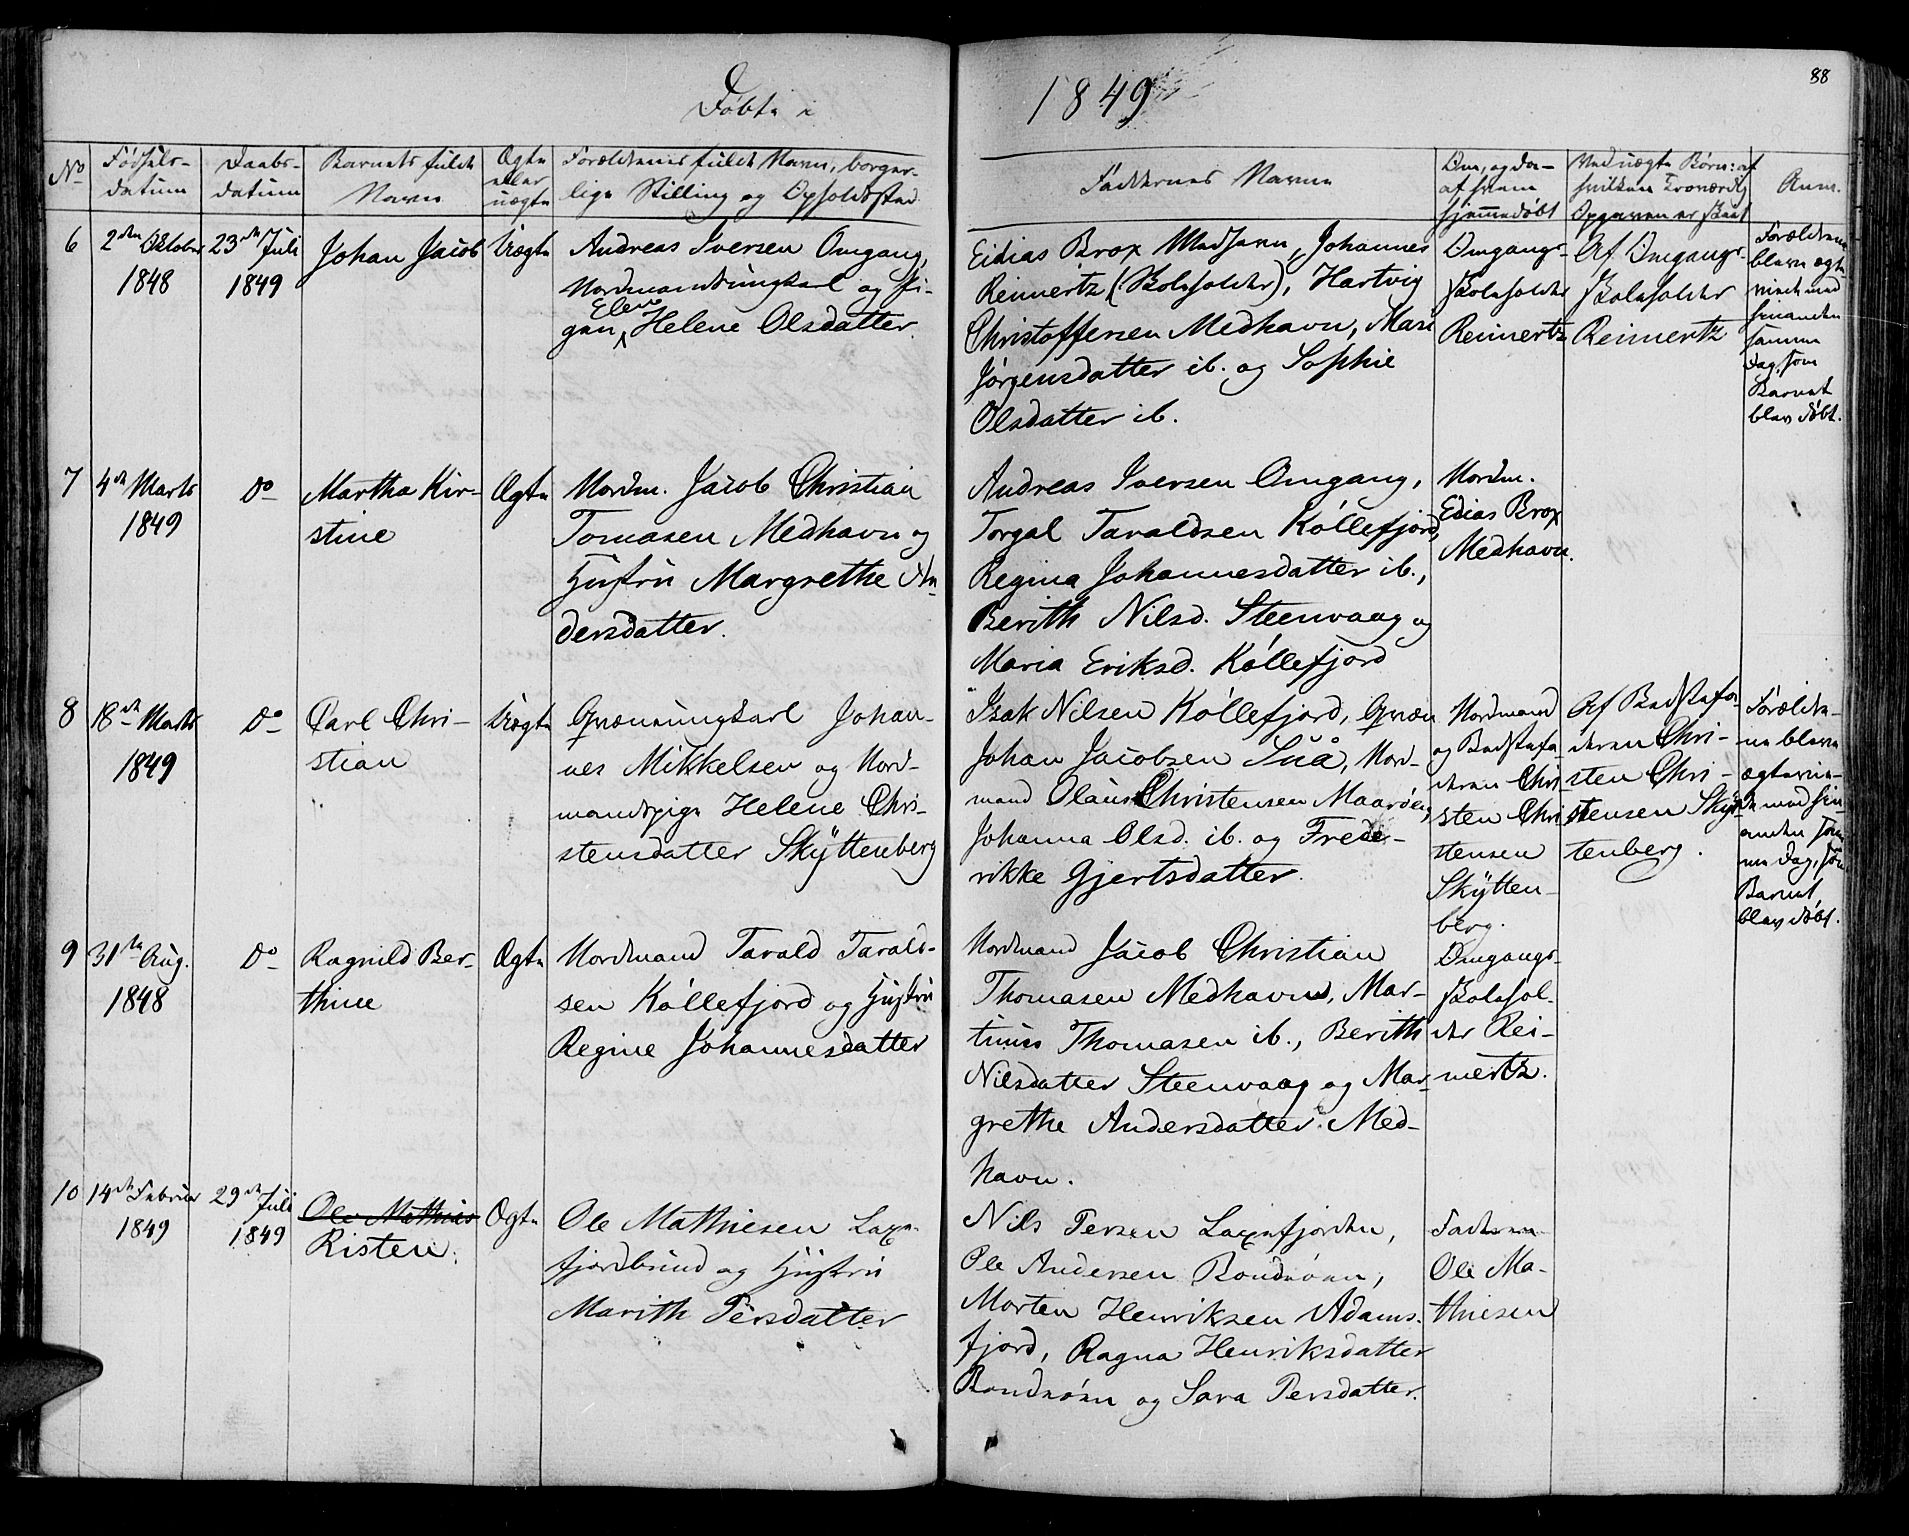 88
Døbte i 1849
No
Fødsels-
datum
Daabs-
datum
Barnets fulde
Navn
Ægte
eller
uægte
Forældrenes fulde Navn, borger-
lige Stilling og Opholdssted
Faddernes Navne
Om, og da
af hvem
hjemmedøbt
Ved uægte Børn: af
hvilken troværdig
Opgaven er skeet
Anm.
6
2den Oktober
1848
23de Juli
1849
Johan Jacob
Uægte
Andreas Iversen Omgang,
Nordmandsungkarl og Pi-
Elen
gen Helene Olsdatter
Eidias Brox Medhavn, Johannes
Reinertz (Skoleholder), Hartvig
Christoffersen Medhavn, Mari
Jørgensdatter ib. og Sophie
Olsdatter ib.
Omgangs-
skoleholder
Reinertz
Af Omgangs-
skoleholder
Reinertz
Forældrene
bleve ægte-
viede med
hinanden
samme
Dag, som
Barnet
blev døbt.
7
4de Marts
1849
Do
Martha Kir-
stine
Ægte
Nordm. Jacob Christian
Tomasen Medhavn og
Hustru Margrethe An-
dersdatter.
Andreas Iversen Omgang,
Torgal Taraldsen Kóllefjord,
Regina Johannesdatter ib.,
Berith Nilsd. Steenvaag og
Maria Eriksd. Kóllefjord
Nordm.
Edias Brox
Medhavn.
8
18de Marts
1849
Do
Carl Chri-
stian
Uægte
Qvænungkarl Johan-
nes Mikkelsen og Nord-
mandspige Helene Chri-
stensdatter Skÿttenberg
Isak Nilsen Kóllefjord, Qvæn
Johan Jacobsen Suå, Nord-
mand Olaus Christensen Maarøen,
Johanna Olsd. ib. og Frede-
rikke Gjertsdatter.
Nordmand
og Bedstefa
deren Chri
sten Chri
stensen
Skÿtten-
berg.
Af Bedstefa-
deren Chri-
sten Chri-
stensen Skÿt
tenberg.
Forældre-
ne bleve
ægtevie-
de med hin-
anden sam
me Dag, som
Barnet
blev døbt.
9
31te Aug.
1848
Do
Ragnild Ber-
thine
Ægte
Nordmand Tarald Tarald-
sen Kóllefjord og Hustru
Regine Johannesdatter
Nordmand Jacob Christian
Thomasen Medhavn, Mar-
tinus Thomasen ib., Berith
Nilsdatter Steenvaag og Mar-
grethe Andersdatter Med-
havn.
Omgangs-
skolehol-
der Rei-
nertz.
10
14de Februar
1849
29de Juli
1849
Ole Mathias
Risten.
Ægte
Ole Mathiesen Laxe-
fjordbund og Hustru
Marith Persdatter
Nils Persen Laxefjorden,
Ole Andersen Bondøen,
Morten Henriksen Adams-
fjord, Ragna Henriksdatter
Bondøen og Sara Persdatter.
Faderen
Ole Ma-
thiesen